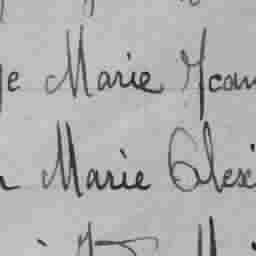 e Marie Jean
Marie Alexi